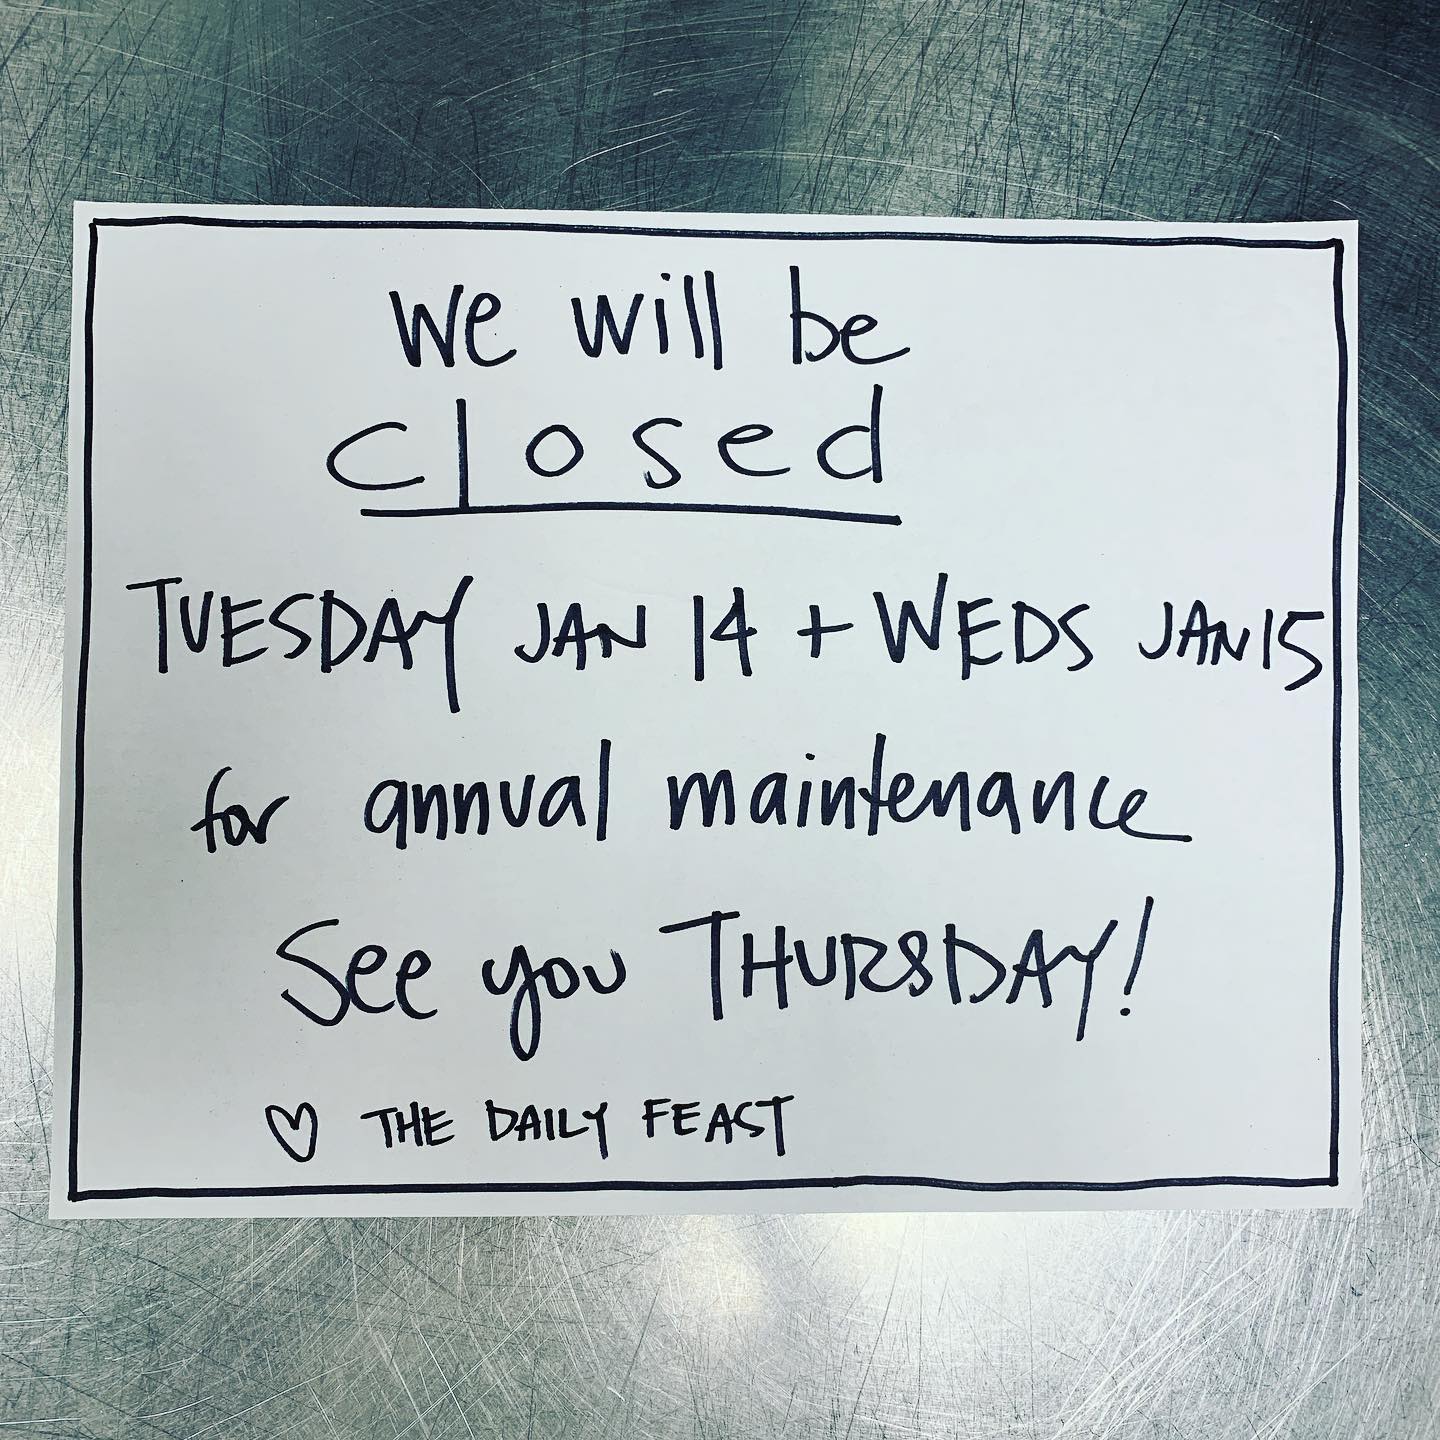 We will be
closed
TUESDAY JAN 14 + WEDS JAN 15
for annual maintenance
See you THURSDAY!
♡ THE DAILY FEAST